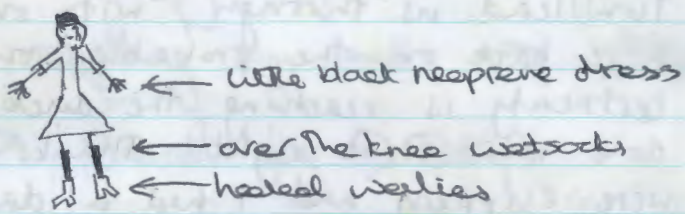 little black neoprene dress
over the knee wetsocks
heeled wellies